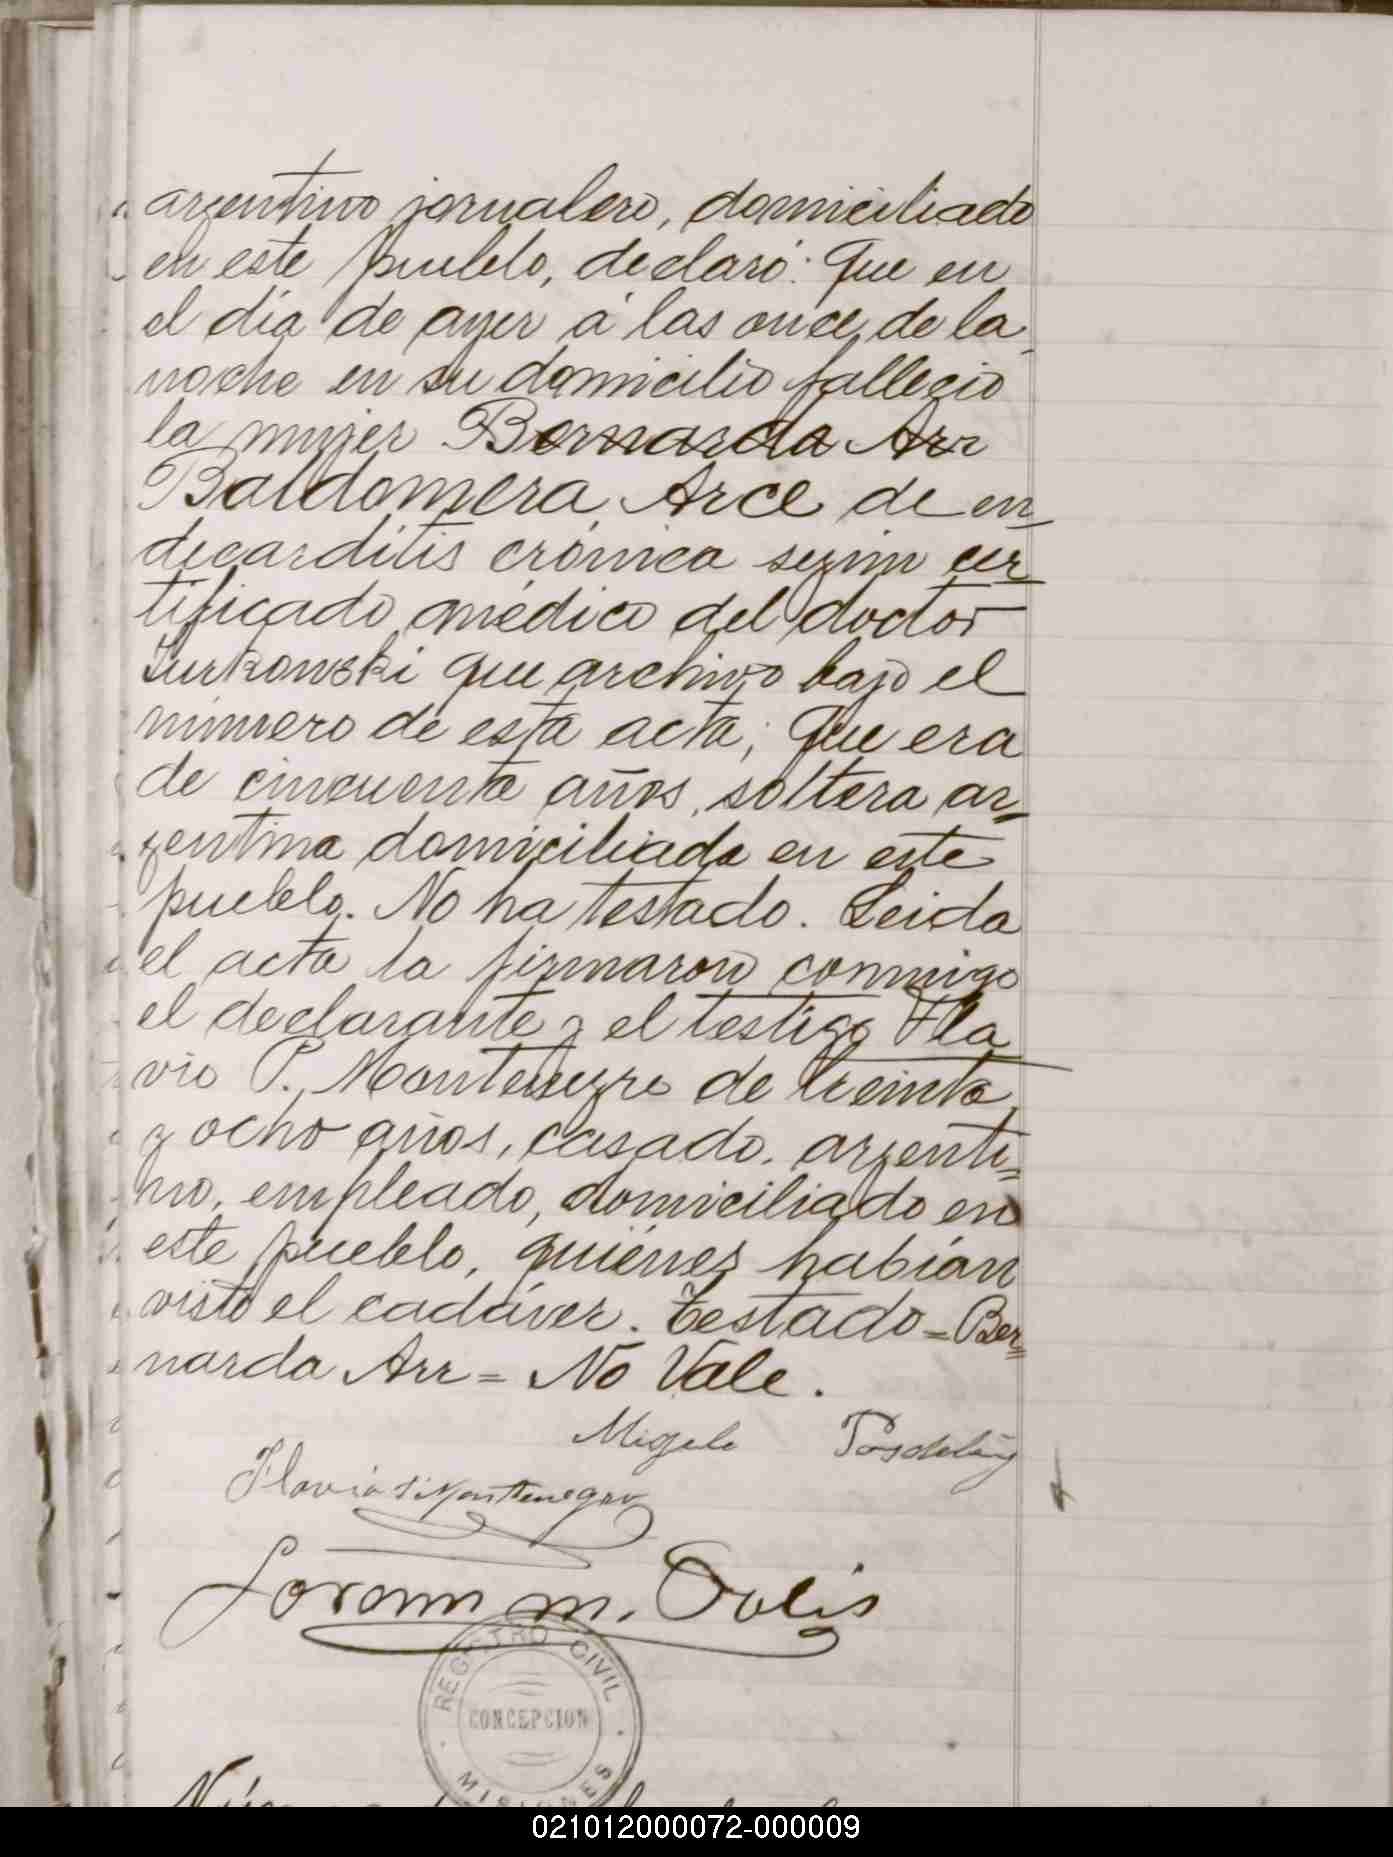 argentino jornalero, domiciliado
en este pueblo, declaró: Que en
el día de ayer á las once de la
noche en su domicilio falleció
la mujer Bernarda Arr
Baldomera Arce de en-
docarditis crónica según cer-
tificado médico del doctor
Surkowski que archivo bajo el
número de esta acta; Que era
de cincuenta años, soltera ar-
gentina domiciliada en este
pueblo. No ha testado. Leida
el acta la firmaron conmigo
el declarante y el testigo Fla
vio P. Montenegro de treinta
y ocho años, casado, argenti-
no, empleado, domiciliado en
este pueblo, quiénes habían
visto el cadáver. Testado = Ber=
narda Arr = No Vale.
Flavio P Montenegro
m. Solis
REGISTRO CIVIL
CONCEPCION
MISIONES
021012000072-000009